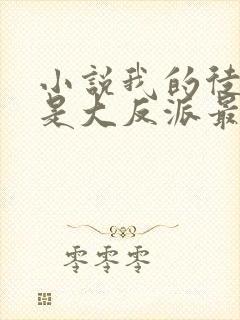 小說我的徒
是大反派最
零零零